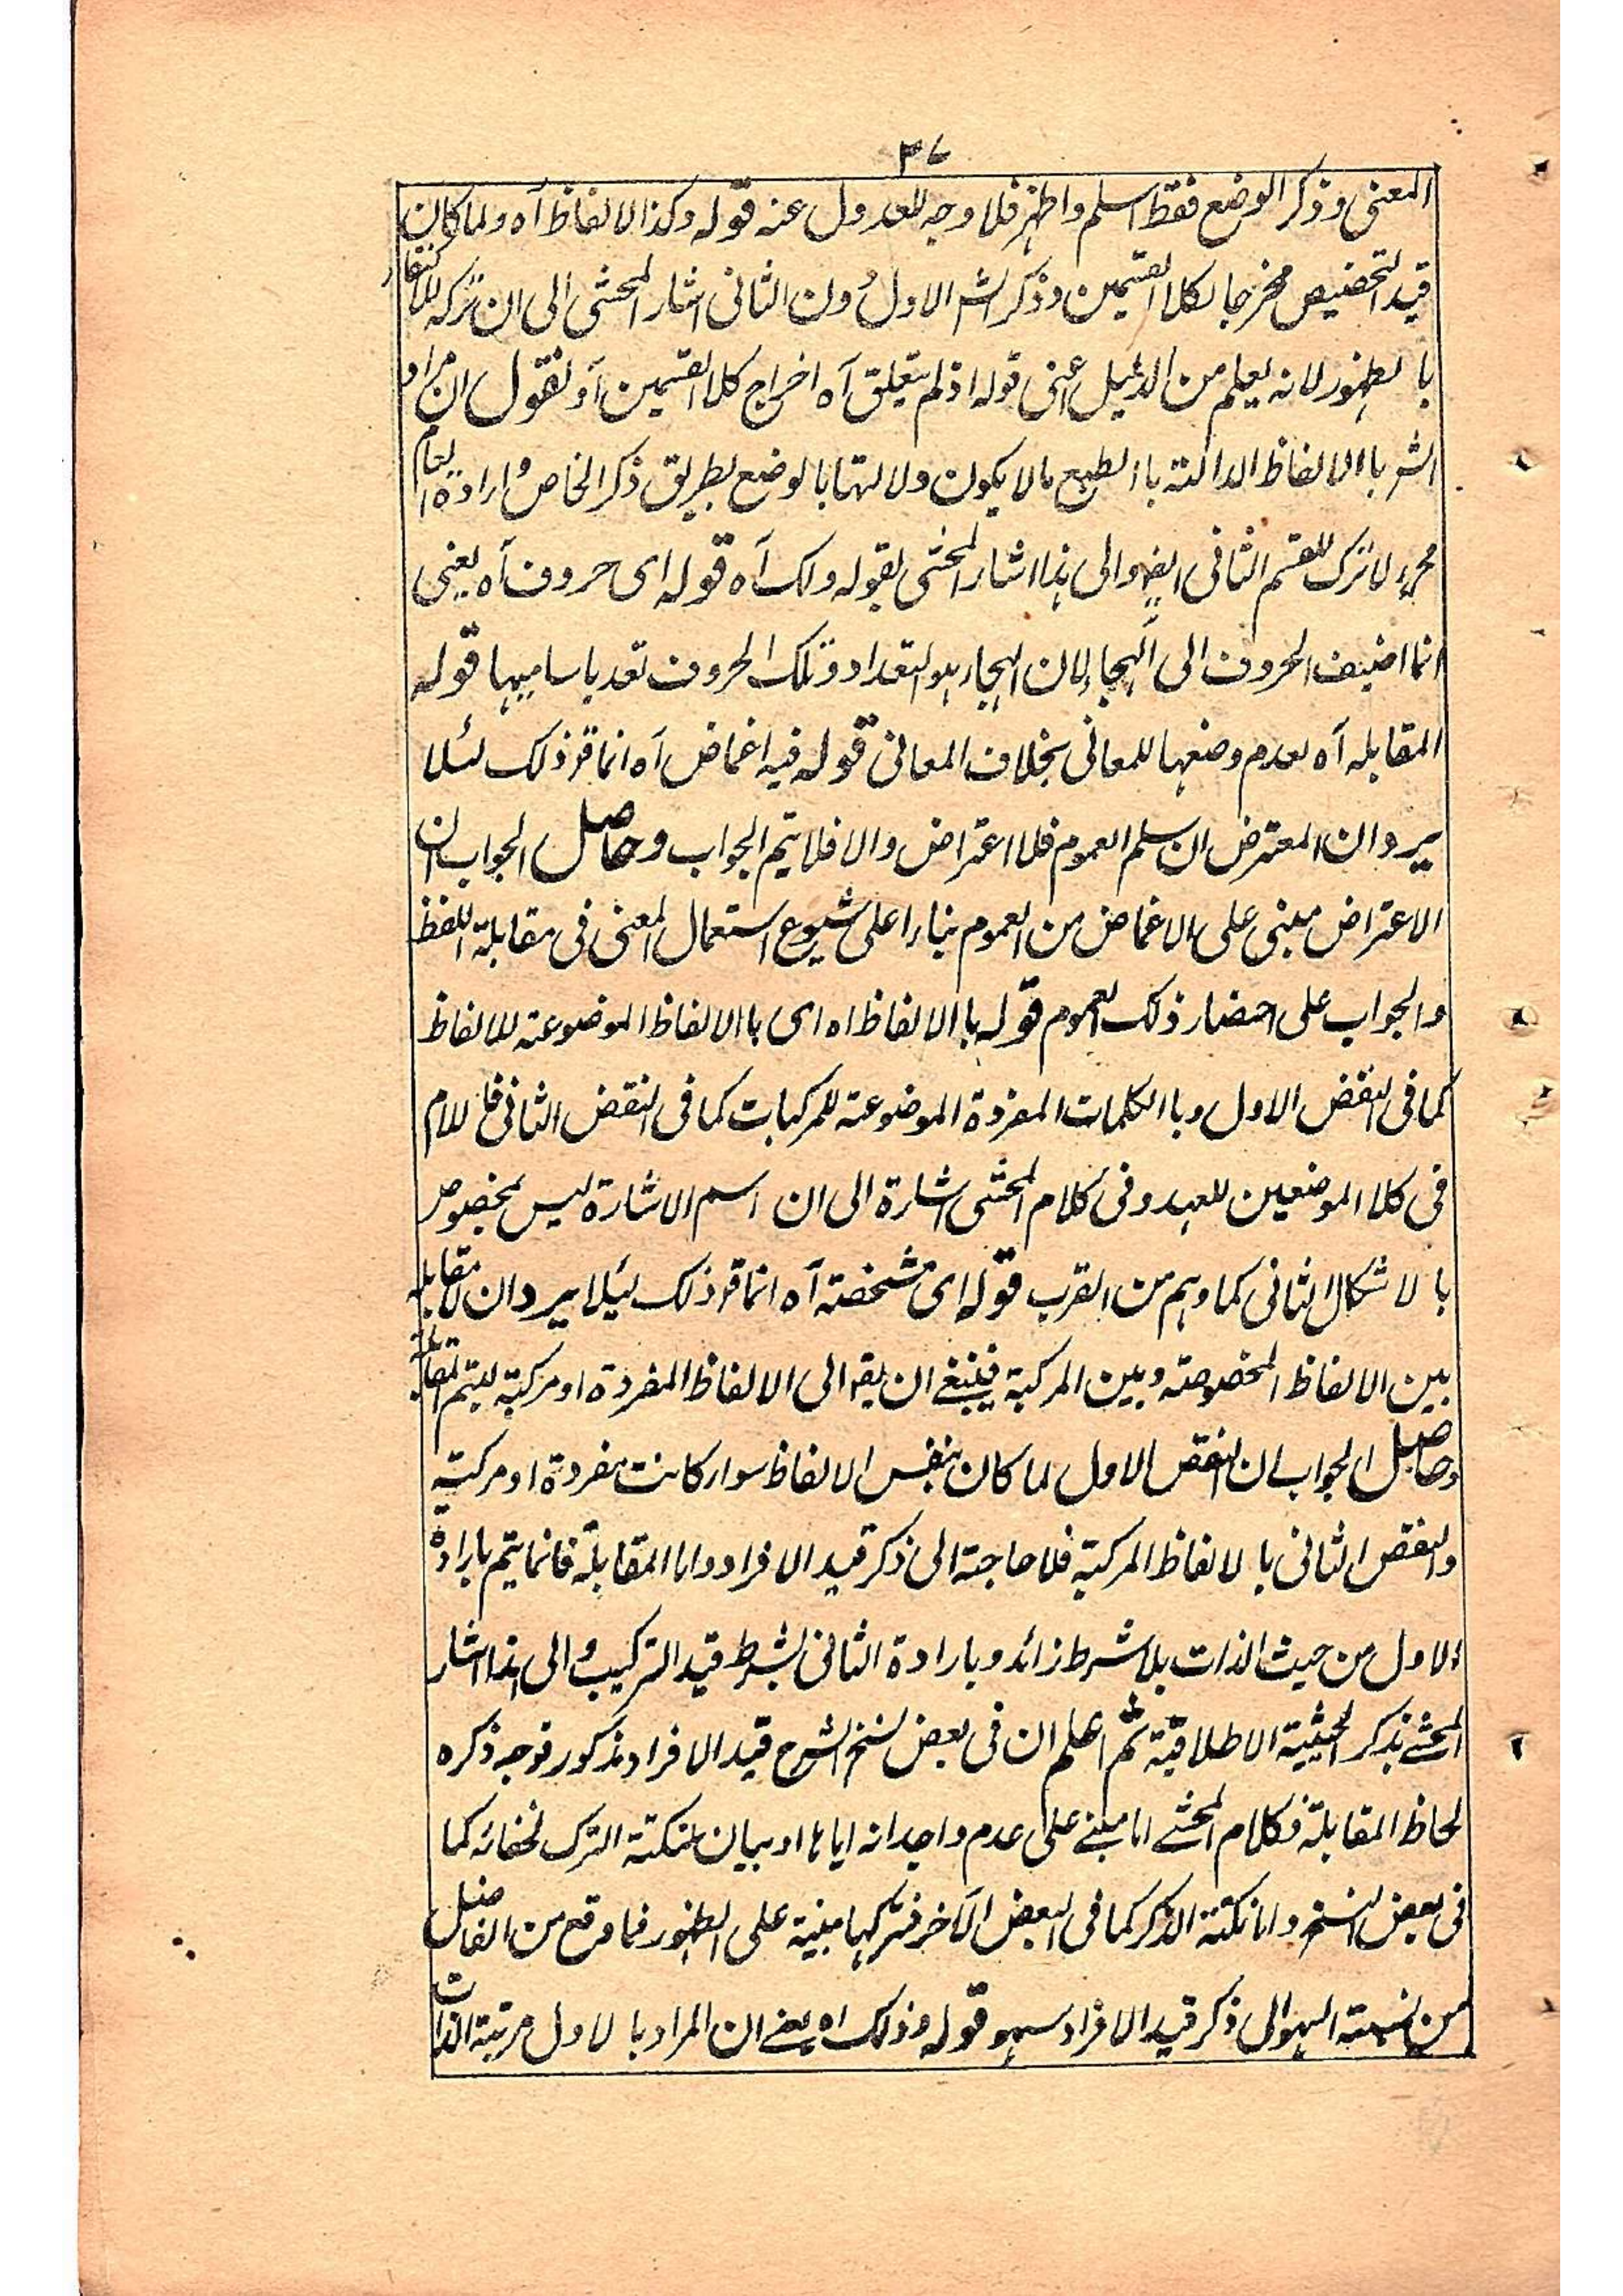 ٣٧
المعنى وذكر الوضع فقط اسلم واظهر فلا وجه للعدول عنه قوله وكذا الالفاظ آه ولما كان
قيد التخصيص مخرجا لكلا القسمين وذكر الش الاول دون الثانى اشار المحشى الى ان تركه للاكتفاء
با لظهور لانه يعلم من الدليل اعنى قوله اذ لم يتعلق آه اخراج كلا القسمين آو نقول ان مراد
الشر باالالفاظ الدالة باالطبع مالا يكون دلالتها بالوضع بطريق ذكر الخاص وارادة العام
فلا ترك للقسم الثانى ايضا والى هذا اشار المحشى بقوله ولك آه قوله اى حروف آه يعنى
انما اضيف الحروف الى الهجاء لان الهجاء هو التعداد وتلك الحروف تعد باساميها قوله
المقابله آه لعدم وضعها للمعانى بخلاف المعانى قوله فيه اغماض آه انما قر ذلك لئلا
يرد ان المعترض ان سلم العموم فلا اعتراض والا فلا يتم الجواب وحاصل الجواب ان
الاعتراض مبنى على الاغماض من العموم بناء على شيوع استعمال المعنى فى مقابلة اللفظ
والجواب على احضار ذلك العموم قوله باالالفاظ اه اى باالالفاظ الموضوعة للالفاظ
كما فى النقض الاول وباالكلمات المفردة الموضوعة للمركبات كما فى النقض الثانى فاللام
فى كلا الموضعين للعهد وفى كلام المحشى اشارة الى ان اسم الاشارة ليس بمخصوص
با لاشكال الثانى كما وهم من القرب قوله اى مشخصة آه انما قر ذلك ليلا يرد ان لامقابله
بين الالفاظ المخصوصة وبين المركبة فينبغى ان يقر الى الالفاظ المفردة او مركبة ليتم المقابلة
وحاصل الجواب ان النقض الاول لما كان بنفس الالفاظ سواء كانت مفردة او مركبة
والنقض الثانى با لالفاظ المركبة فلا حاجة الى ذكر قيد الافراد واما المقابلة فانما يتم بارادة
الاول من حيث الذات بلا شرط زائد وبارادة الثانى بشرط قيد التركيب والى هذا اشار
المحشے بذكر الحيثية الاطلاقية ثم اعلم ان فى بعض نسخ الشرح قيد الافراد مذكور فوجه ذكره
لحاظ المقابلة فكلام المحشے اما مبنے على عدم واجدانه اياها او بيان لنكتة الترك لخفائه كما
فى بعض النسخ واما نكتة الذكر كما فى البعض الآخر فتركها مبنية على الظهور فما وقع من الفاضل
من نسبة السهو الى ذكر قيد الافراد سهو قوله وذلك اه يعنے ان المراد با لاول مرتبة الذات